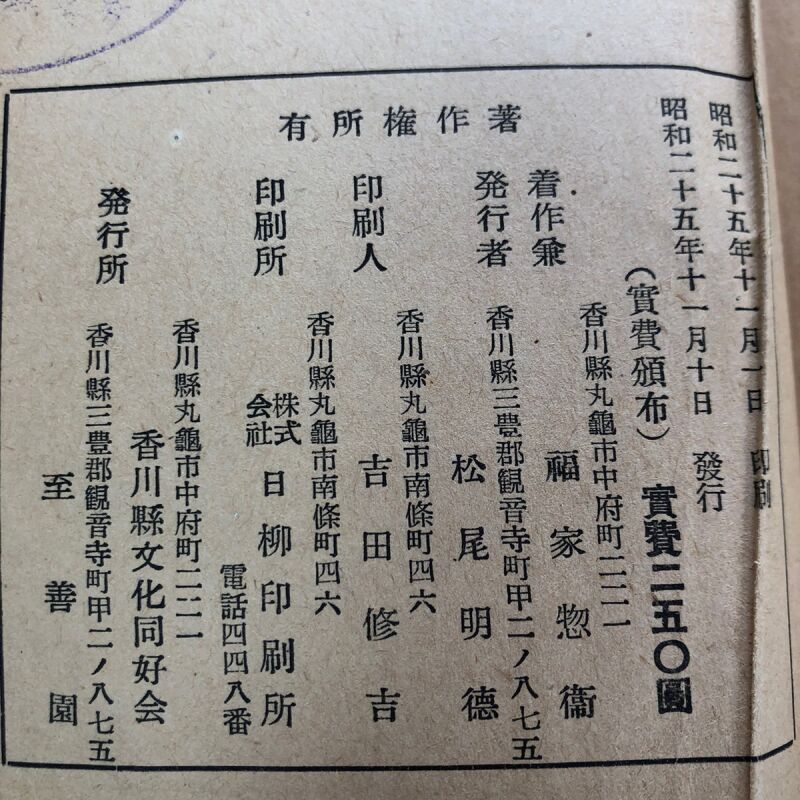 昭和二十五年十一月一日　印刷
昭和二十五年十一月十日　發行
（實費頒布）實費二五〇圓
著作権所有
着作兼
発行者
香川縣丸龜市中府町二二一
福家惣衞
香川縣三豊郡観音寺町甲二ノ八七五
松尾明德
印刷人
香川縣丸龜市南條町四六
吉田修吉
印刷所
香川縣丸龜市南條町四六
株式会社日柳印刷所
電話四四八番
発行所
香川縣丸龜市中府町二二一
香川縣文化同好会
香川縣三豊郡観音寺町甲二ノ八七五
至善園